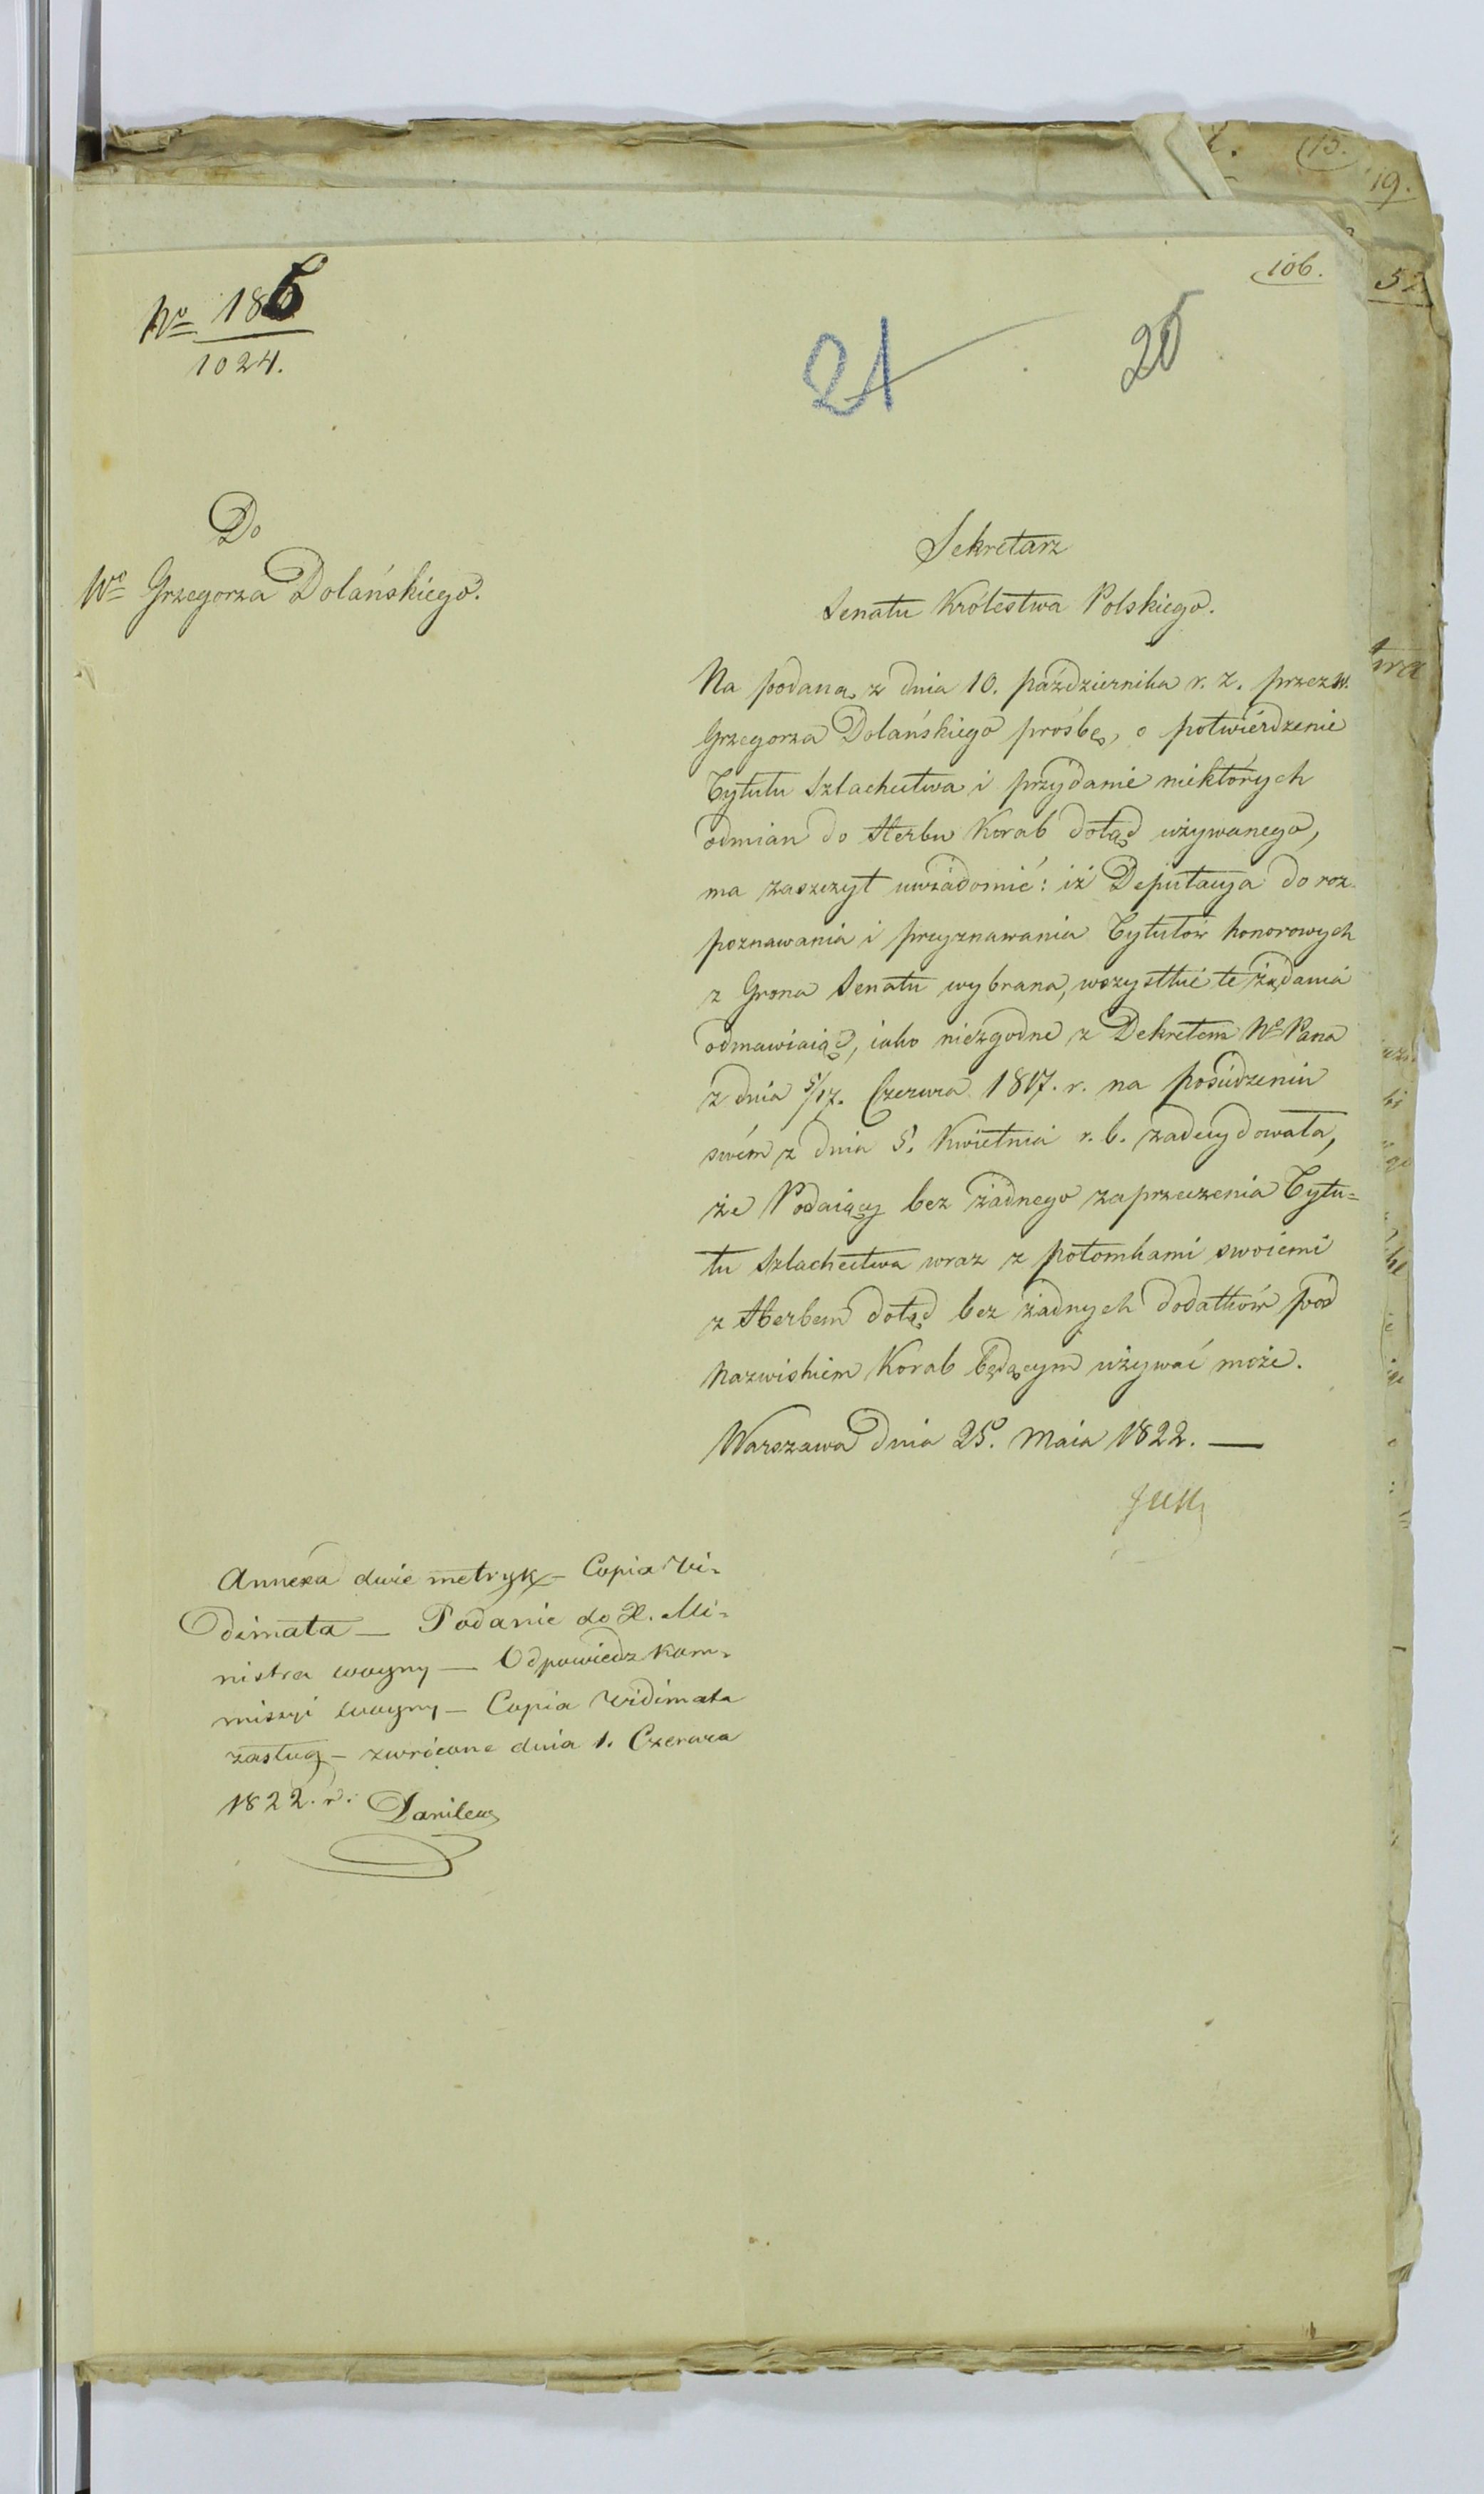 106.
No 186
1024.
21
20
Do
Wo Grzegorza Dolańskiego.
Sekretarz
Senatu Królestwa Polskiego.
Na podaną z dnia 10. października r. z. przez W.
Grzegorza Dolańskiego prośbę, o potwierdzenie
Tytułu Szlachectwa i przydanie niektórych
odmian do Herbu Korab dotąd używanego,
ma zaszczyt uwiadomić: iż Deputacya do roz-
poznawania i przyznawania Tytułów honorowych
z Grona Senatu wybrana, wszystkie te żądania
odmawiaiąc, iako niezgodne z Dekretem No Pana
z dnia 5/17. Czerwca 1817. r. na posiedzeniu
swém z dnia 5. Kwietnia r. b. zadecydowała,
że Podaiący bez żadnego zaprzeczenia Tytu=
łu Szlachectwa wraz z potomkami swoiemi
z Herbem dotąd bez żadnych dodatków pod
Nazwiskiem Korab będącym używać może.
Warszawa dnia 25. Maia 1822. —
Annexa dwie metryk – Copia Vi-
dimata — Podanie do X. Mi-
nistra woyny — Odpowiedz Kom-
missyi woyny – Copia Vidimata
zasług – zwrócone dnia 1. Czerwca
1822. r.
19.
52